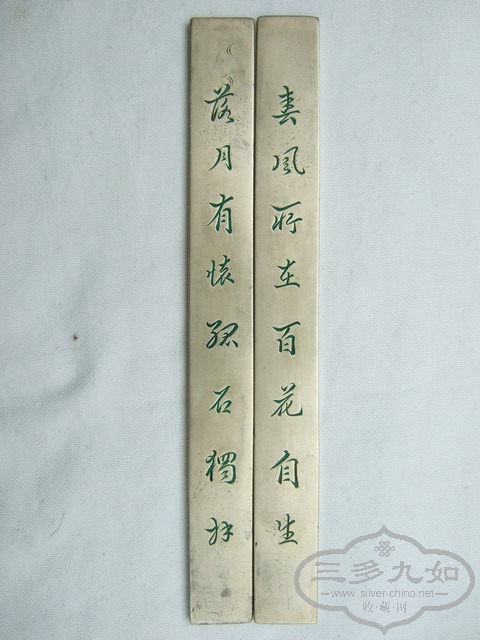 春風所在百花自生
落月有懷孤石獨拜
三多九如
www.silver-china.net
收·藏·网